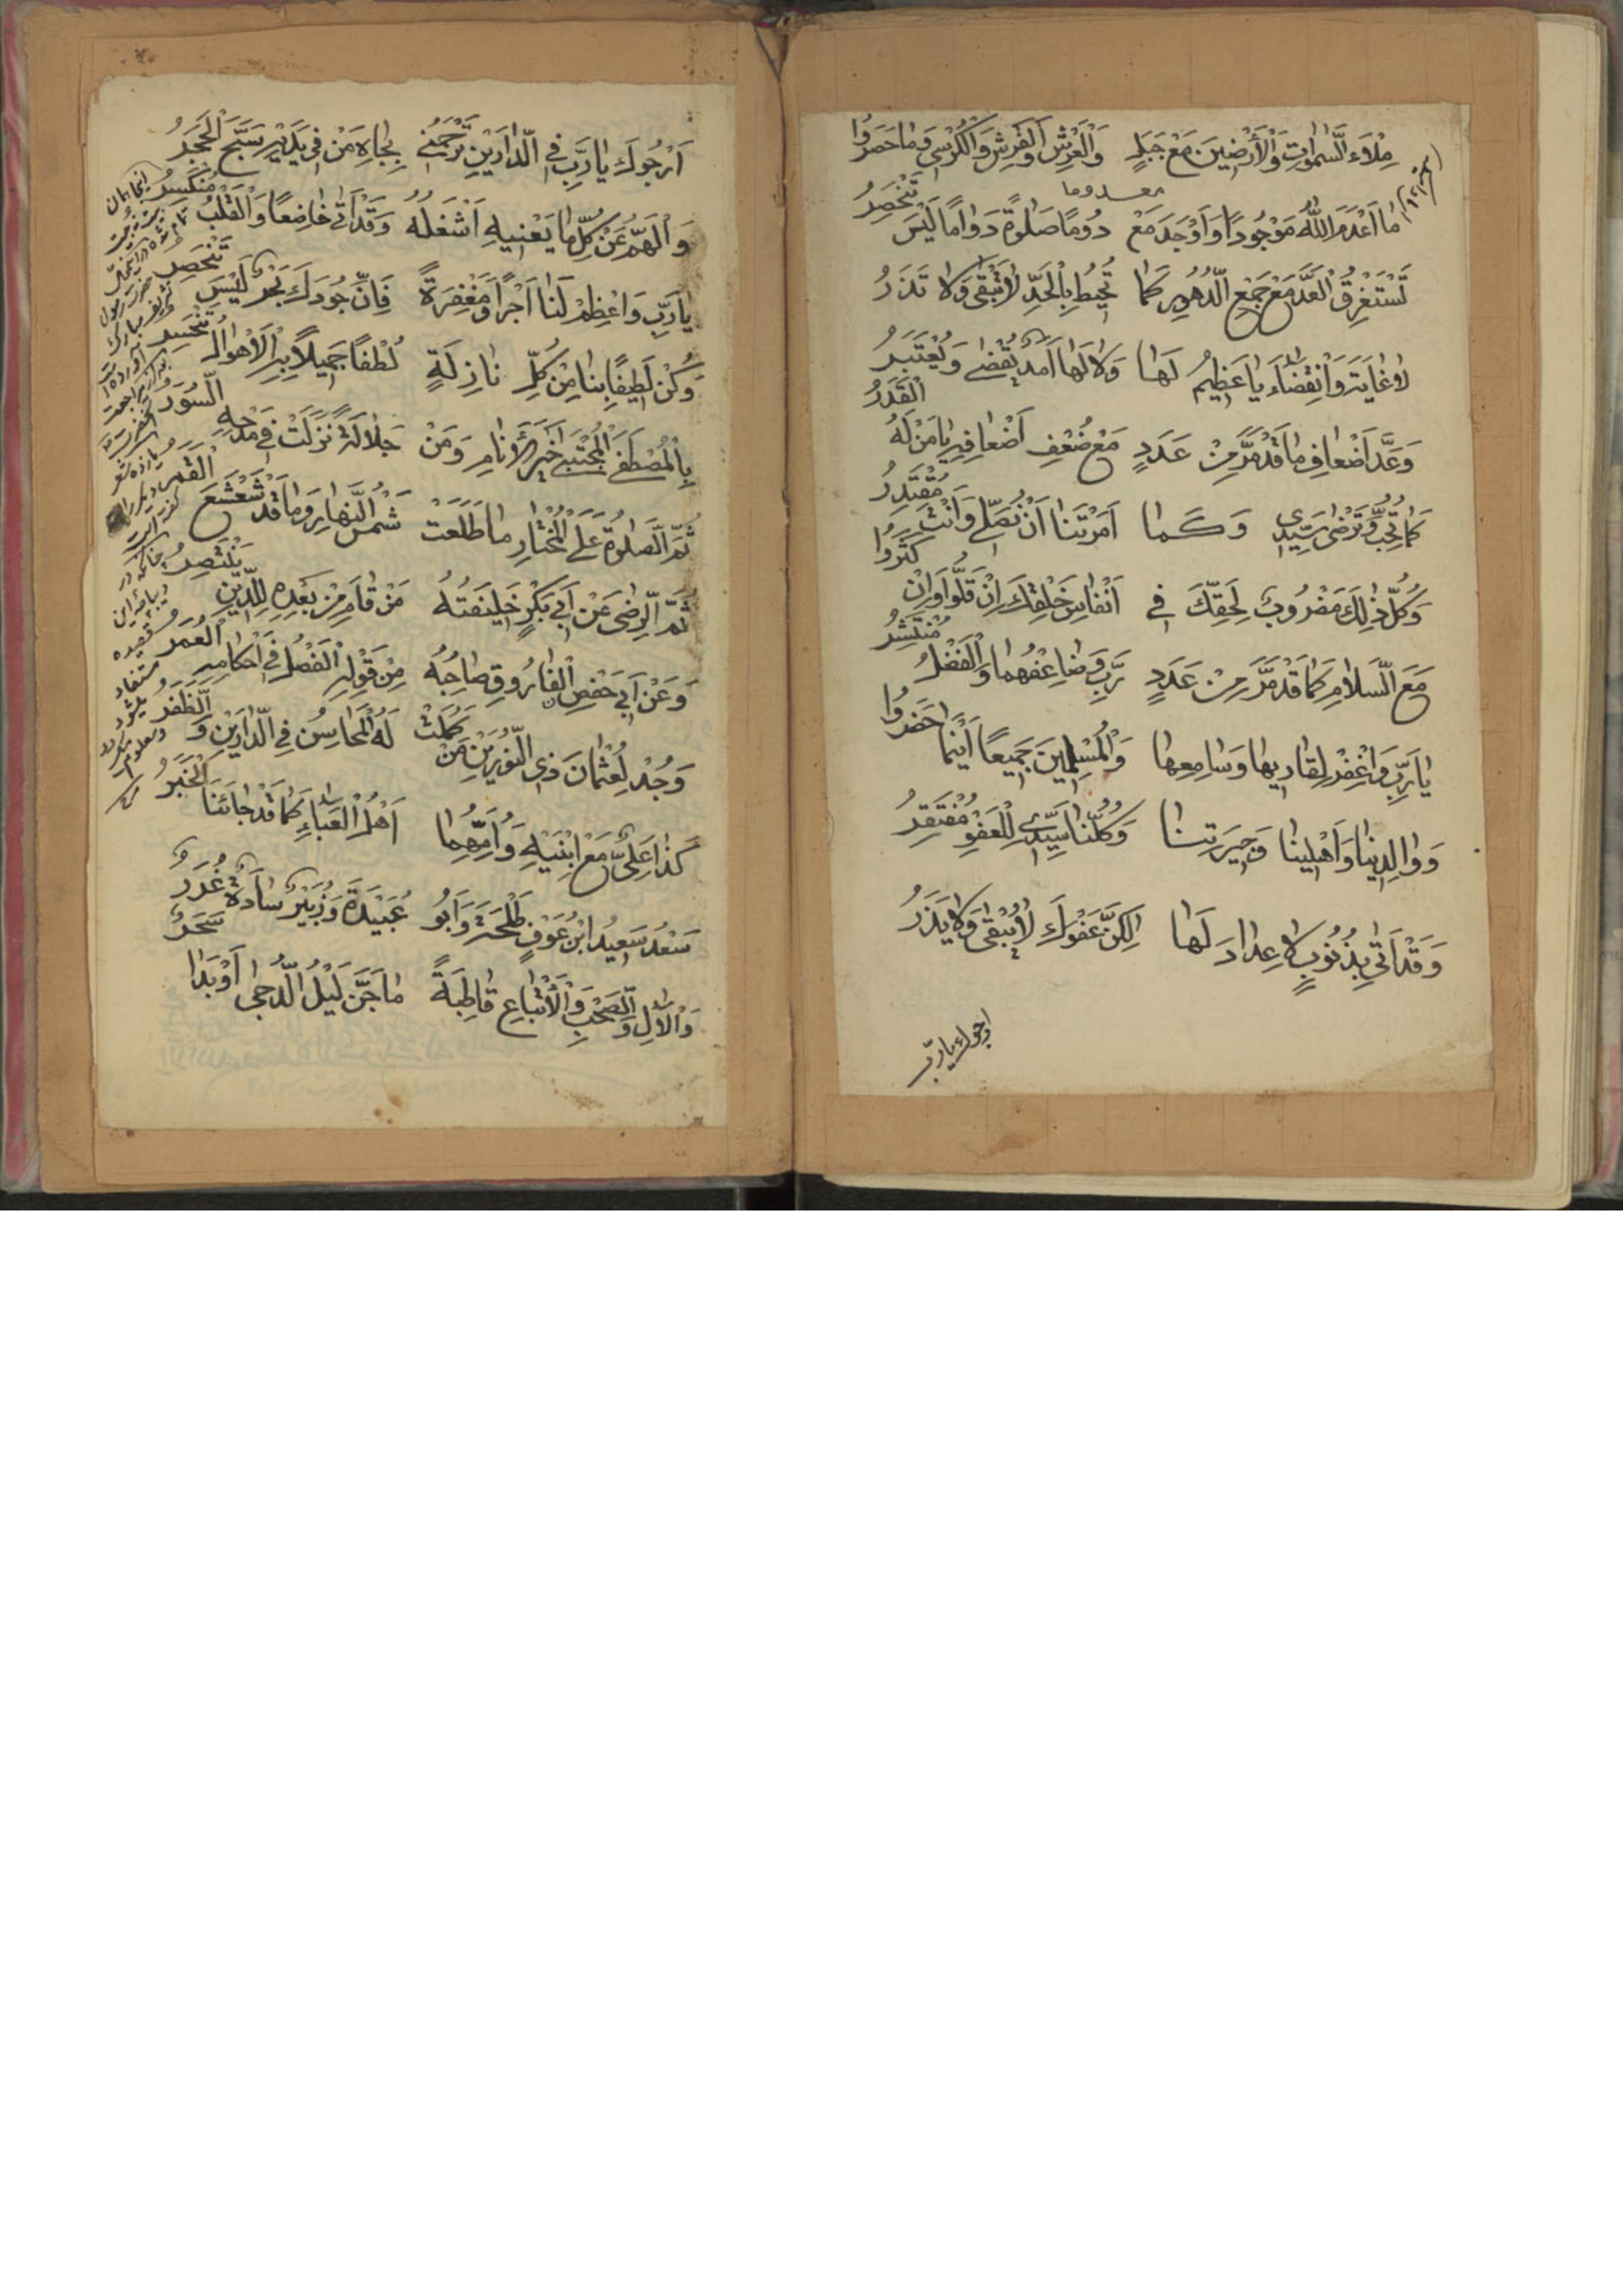 مِلْاءَ السَّمٰوٰاتِ وَالْأَرَضِينَ مَعْ جَبَلٍ وَالْعَرْشِ وَالْفَرْشِ وَالْكُرْسِى وَمٰا حَصَرُوا
مٰا اَعْدَمَ اللّٰهُ مَوْجُودًا وَاَوْجَدَ مَعْ دُومًا صَلٰوةً دَوٰامًا لَيْسَ تَنْحَصِرُ
معدوما
تَسْتَغْرِقُ الْعَدَّ مَعْ جَمْعِ الدُّهُورِ كَمٰا تُحِيطُ بِالْحَدِّ لاٰ تُبْقِى وَلاٰ تَذَرُ
لاٰ غٰايَةَ وَانْقِضٰاءَ يٰا عَظِيمُ لَهٰا وَلاٰ لَهٰا اَمَدٌ يُقْضٰى وَيُعْتَبَرُ
وَعَدَّ اَضْعٰافِ مٰا قَدْ مَرَّ مِنْ عَدَدٍ مَعْ ضُعْفِ اَضْعٰافِهِ يٰا مَنْ لَهُ الْقَدَرُ
كَمٰا تُحِبُّ وَتَرْضٰى سَيِّدِى وَكَمٰا اَمَرْتَنٰا اَنْ نُصَلِّى وَانْتَ مُقْتَدِرُ
وَكُلُّ ذٰلِكَ مَضْرُوبٌ لِحَقِّكَ فِى اَنْفٰاسِ خَلْقِكَ اِنْ قَلُّوا وَاِنْ كَثُرُوا
مَعَ السَّلاٰمِ كَمٰا قَدْ مَرَّ مِنْ عَدَدٍ رَبِّ وَضٰاعِفْهُمٰا وَالْفَضْلُ مُنْتَشِرُ
يٰا رَبِّ وَاغْفِرْ لِقٰارِيهٰا وَسٰامِعِهٰا وَالْمُسْلِمِينَ جَمِيعًا اَيْنَمٰا حَضَرُوا
وَوٰالِدِينٰا وَاَهْلِينٰا وَجِيرَتِنٰا وَكُلُّنٰا سَيِّدِى لِلْعَفْوِ مُفْتَقِرُ
وَقَدْ اَتٰى بِذُنُوبٍ لاٰ عِدٰادَ لَهٰا لٰكِنَّ عَفْوَكَ لاٰ يُبْقِى وَلاٰ يَذَرُ
ارجوك يا رب
اَرْجُوكَ يٰا رَبِّ فِى الدّٰارَيْنِ تَرْحَمُنِى بِجٰاهِ مَنْ فِى يَدَيْهِ سَبَّحَ الْحَجَرُ
وَالْهَمُّ عَنْ كُلِّ مٰا يَعْنِيهِ اَشْغَلَهُ وَقَدْ اَتٰى خٰاضِعًا وَالْقَلْبُ مُنْكَسِرُ
يٰا رَبِّ وَاعْظِمْ لَنٰا اَجْرًا وَمَغْفِرَةً فَاِنَّ جُودَكَ بَحْرٌ لَيْسَ تَنْحَصِرُ
وَكُنْ لَطِيفًا بِنٰا مِنْ كُلِّ نٰازِلَةٍ لُطْفًا جَمِيلًا بِهِ الْاَهْوٰالُ تَنْحَسِرُ
بِالْمُصْطَفَى الْمُجْتَبٰى خَيْرِ الْاَنٰامِ وَمَنْ جَلاٰلَةً نَزَلَتْ فِى مَدْحِهِ السُّوَرُ
ثُمَّ الصَّلٰوةُ عَلَى الْمُخْتٰارِ مٰا طَلَعَتْ شَمْسُ النَّهٰارِ وَمٰا قَدْ شَعْشَعَ الْقَمَرُ
ثُمَّ الرِّضٰى عَنْ اَبِى بَكْرٍ خَلِيفَتُهُ مَنْ قٰامَ مِنْ بَعْدِهِ لِلدِّينِ يَنْتَصِرُ
وَعَنْ اَبِى حَفْصٍ الْفٰارُوقِ صٰاحِبُهُ مِنْ قَوْلِهِ الْفَصْلُ فِى اَحْكٰامِهِ الْعُمَرُ
وَجُدْ لِعُثْمٰانَ ذِى النُّورَيْنِ مَنْ كَمُلَتْ لَهُ الْمَحٰاسِنُ فِى الدّٰارَيْنِ وَالظَّفَرُ
كَذٰا عَلِىٌّ مَعَ ابْنَيْهِ وَاُمِّهِمٰا اَهْلُ الْعَبٰاءِ كَمٰا قَدْ جٰائَنَا الْخَبَرُ
سَعْدٌ سَعِيدُ ابْنُ عَوْفٍ طَلْحَةٌ وَاَبُو عُبَيْدَةَ وَزُبَيْرٌ سٰادَةٌ غُرَرُ
وَالْاٰلِ وَالصَّحْبِ وَالْاَتْبٰاعِ قٰاطِبَةً مٰا جَنَّ لَيْلُ الدُّجٰى اَوْ بَدٰا سَحَرُ